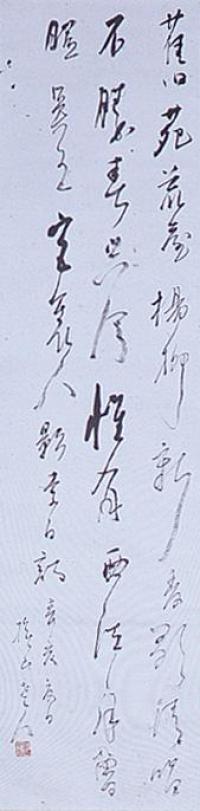 舊苑荒臺楊柳新菱歌清唱
不勝春只今惟有西江月曾
照吳王宮裏人題李白詩辛亥